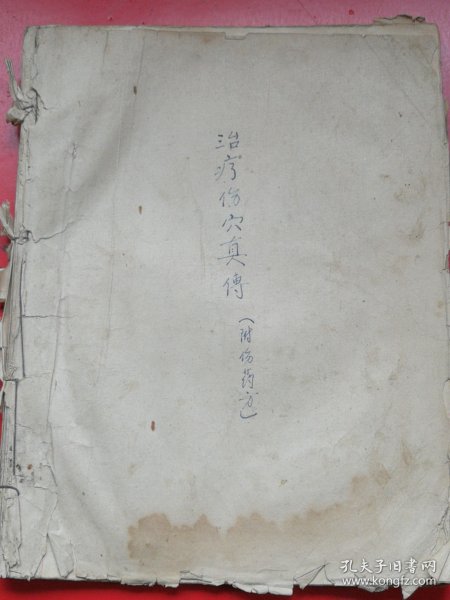 治疗伤穴真傳
（附伤药方）
孔夫子旧书网
www.kongfz.com